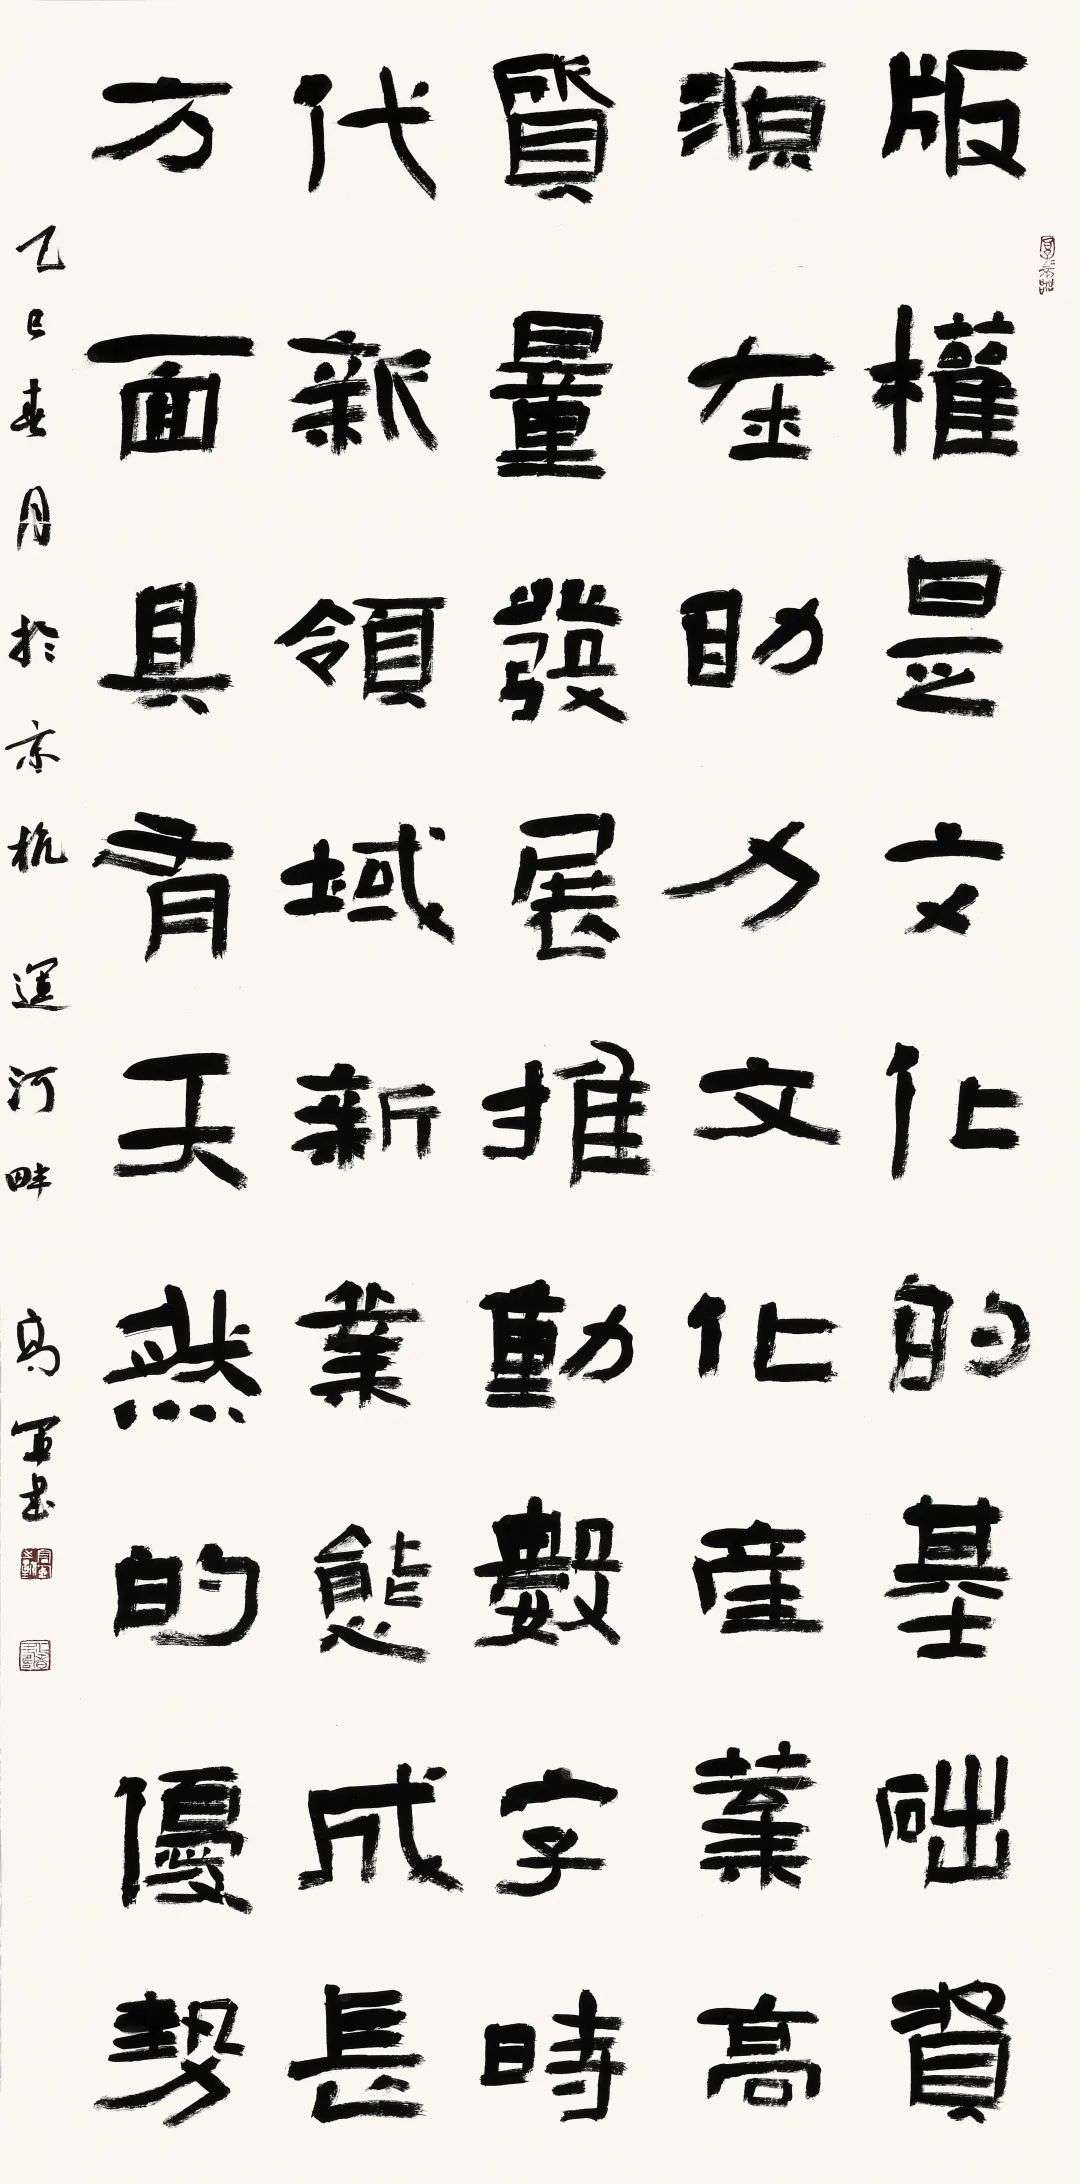 版權是文化的基础資
源在助力文化產業高
質量發展推動數字時
代新領域新業態成長
方面具有天然的優勢
乙巳春月於京杭運河畔高軍書